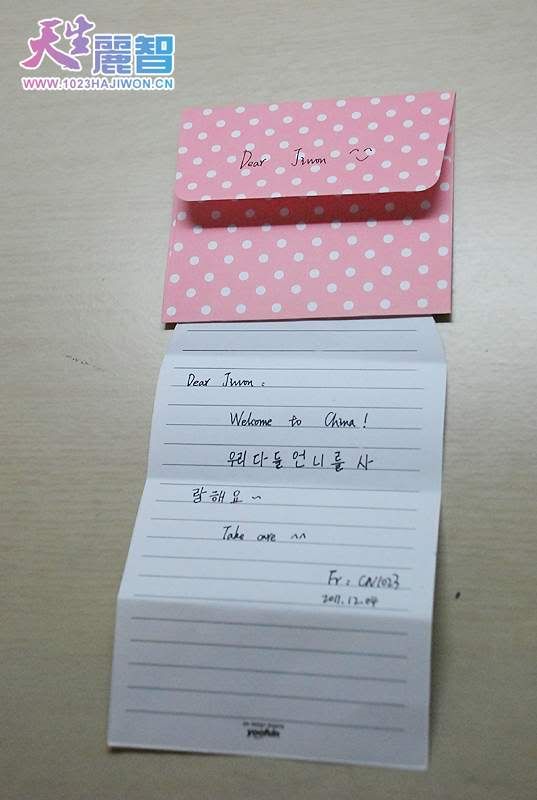 天生麗智
WWW.1023HAJIWON.CN
Dear Jiwon
Dear Jiwon :
Welcome to China !
우리 다들 언니를 사
랑해요 ~
Take care ^^
Fr : CN1023
2011.12.04